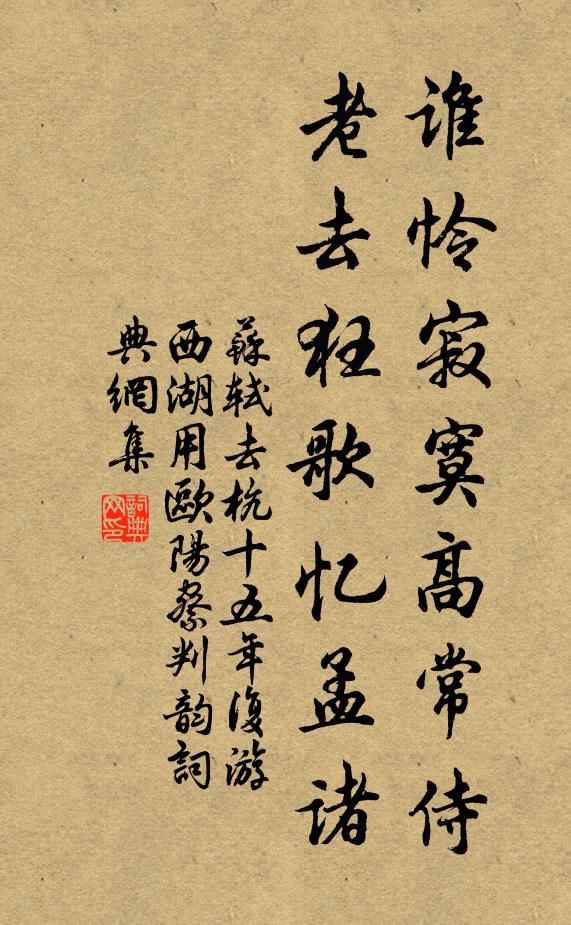 谁怜寂寞高常侍
老去狂歌忆孟诸
蘇軾去杭十五年復游
西湖用歐陽察判韵詞
典網集
詞典
网印